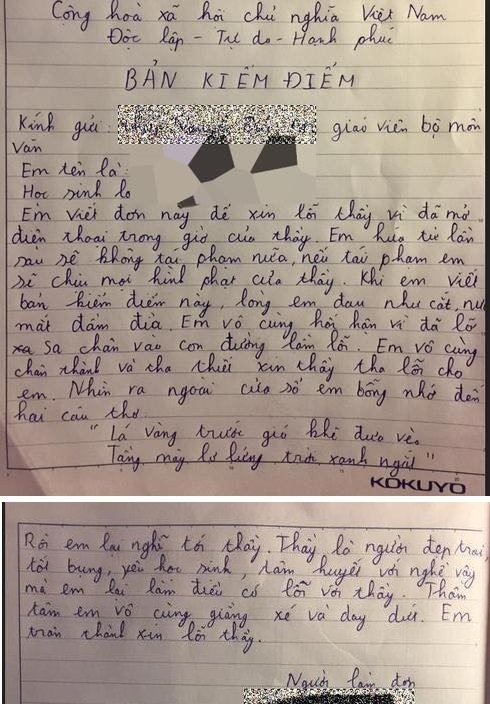 Cộng hoà xã hội chủ nghĩa Việt Nam
Độc lập - Tự do - Hạnh phúc
BẢN KIỂM ĐIỂM
Kính gửi: giáo viên bộ môn
Văn
Em tên là:
Học sinh lớ
Em viết đơn này để xin lỗi thầy vì đã mở
điện thoại trong giờ của thầy. Em hứa từ lần
sau sẽ không tái phạm nữa, nếu tái phạm em
sẽ chịu mọi hình phạt của thầy. Khi em viết
bản kiểm điểm này, lòng em đau như cắt, nước
mắt đầm đìa. Em vô cùng hối hận vì đã lỡ
xa sa chân vào con đường lầm lỗi. Em vô cùng
chân thành và tha thiết xin thầy tha lỗi cho
em. Nhìn ra ngoài cửa sổ em bỗng nhớ đến
hai câu thơ
"Lá vàng trước gió khẽ đưa vèo
Tầng mây lơ lửng trời xanh ngắt"
KOKUYO
Rồi em lại nghĩ tới thầy. Thầy là người đẹp trai,
tốt bụng, yêu học sinh, tâm huyết với nghề vậy
mà em lại làm điều có lỗi với thầy. Thâm
tâm em vô cùng giằng xé và day dứt. Em
trân thành xin lỗi thầy.
Người làm đơn